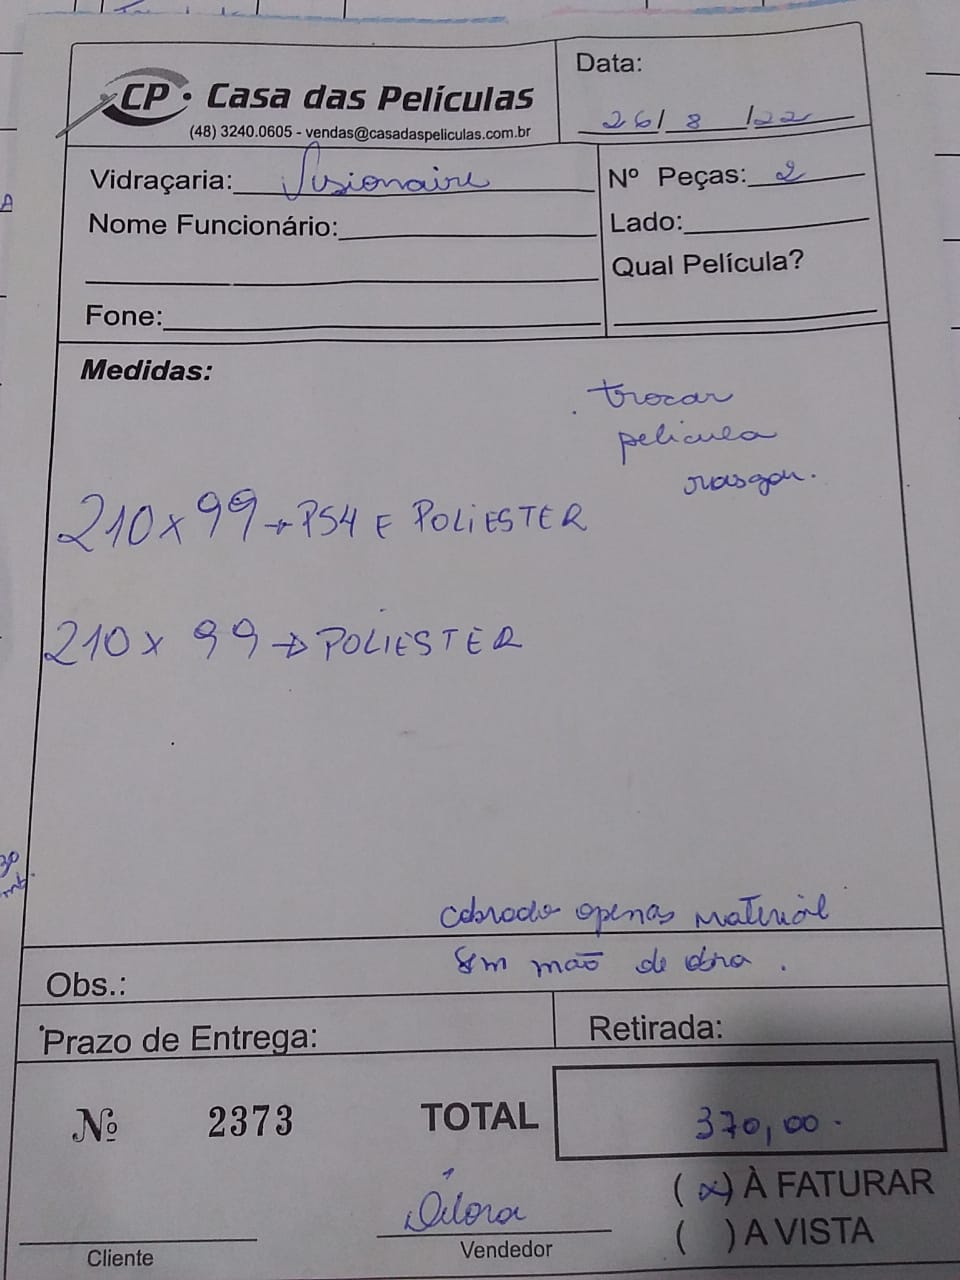 CP · Casa das Películas
(48) 3240.0605 - vendas@casadaspeliculas.com.br
Data:
26/ 8 /22
Vidraçaria: Visionaire
Nº Peças: 2
Nome Funcionário:
Lado:
Qual Película?
Fone:
Medidas:
. trocar
pelicula
rasgou.
210 x 99 → PS4 E POLIESTER
210 x 99 → POLIESTER
cobrado apenas material
sem mão de obra .
Obs.:
Prazo de Entrega:
Retirada:
Nº 2373
TOTAL
370,00.
(x) À FATURAR
( ) A VISTA
Cliente
Vendedor